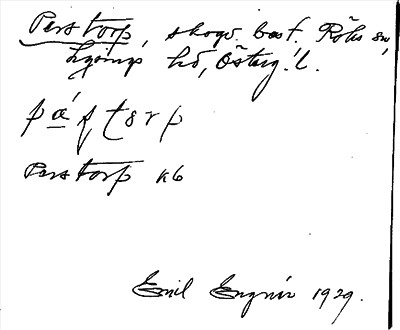 Perstorp, skogv. bost. Röks sn,
Lysings hd, Österg. l.
Perstorp kb
Emil 1929.